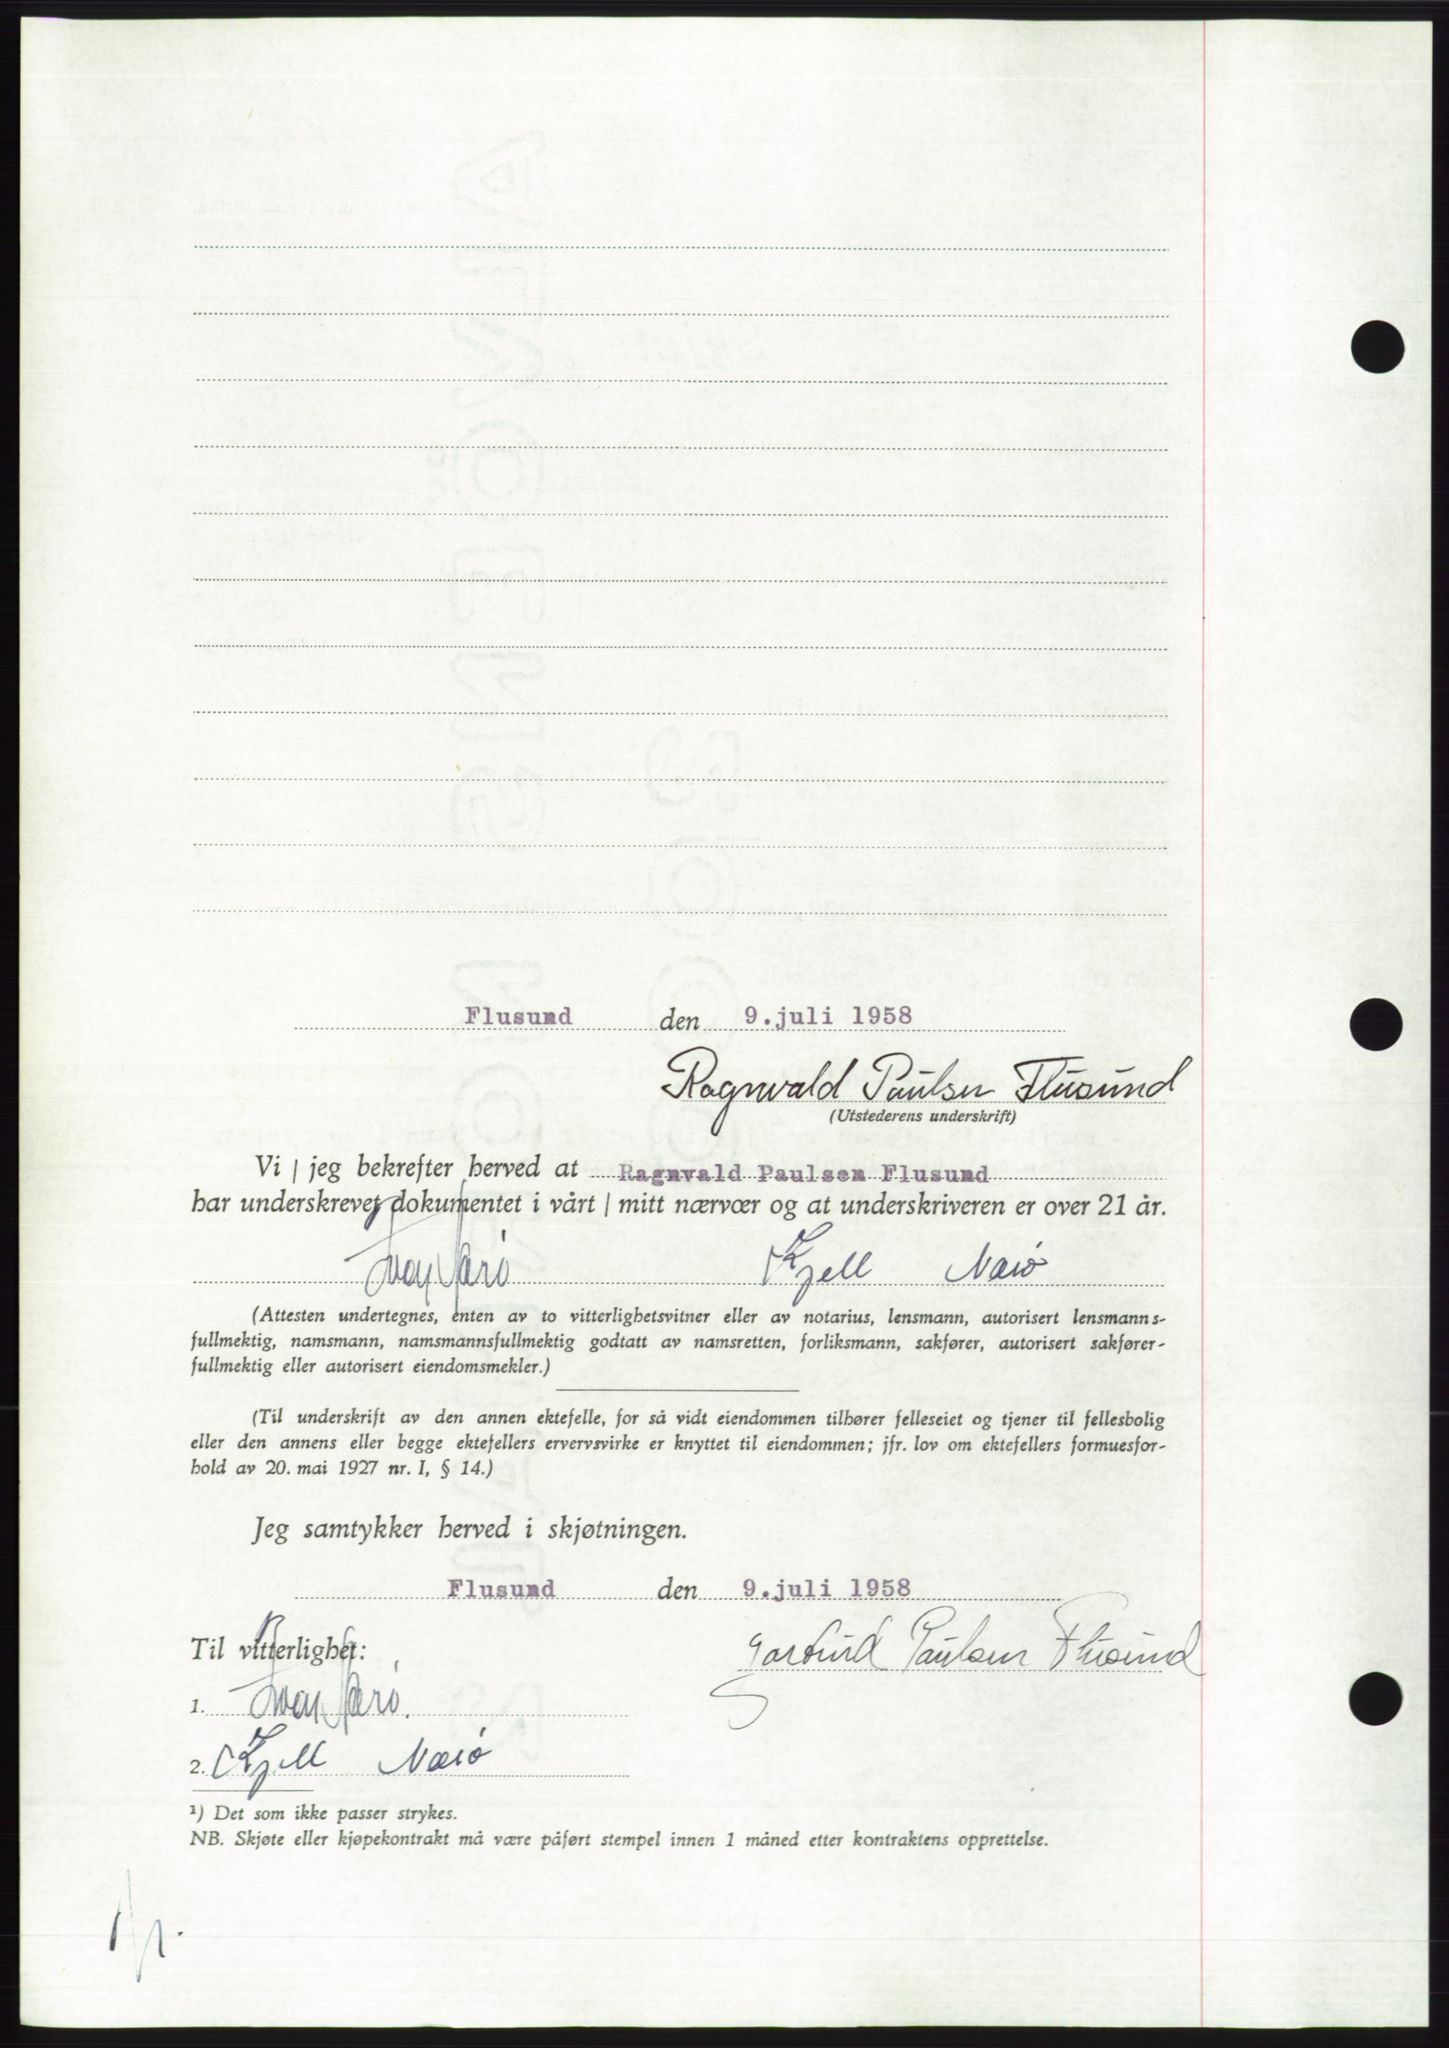 Flusund den 9.juli 1958
Ragnvald Paulsen Flusund
(Utstederens underskrift)
Vi / jeg bekrefter herved at Ragnvald Paulsen Flusund
har underskrevet dokumentet i vårt / mitt nærvær og at underskriveren er over 21 år.
Kjell Nærø
(Attesten undertegnes, enten av to vitterlighetsvitner eller av notarius, lensmann, autorisert lensmanns-
fullmektig, namsmann, namsmannsfullmektig godtatt av namsretten, forliksmann, sakfører, autorisert sakfører-
fullmektig eller autorisert eiendomsmekler.)
(Til underskrift av den annen ektefelle, for så vidt eiendommen tilhører felleseiet og tjener til fellesbolig
eller den annens eller begge ektefellers ervervsvirke er knyttet til eiendommen; jfr. lov om ektefellers formuesfor-
hold av 20. mai 1927 nr. I, § 14.)
Jeg samtykker herved i skjøtningen.
Flusund den 9.juli 1958
Til vitterlighet:
Paulsen Flusund
1.
2. Kjell Nærø
¹) Det som ikke passer strykes.
NB. Skjøte eller kjøpekontrakt må være påført stempel innen 1 måned etter kontraktens opprettelse.